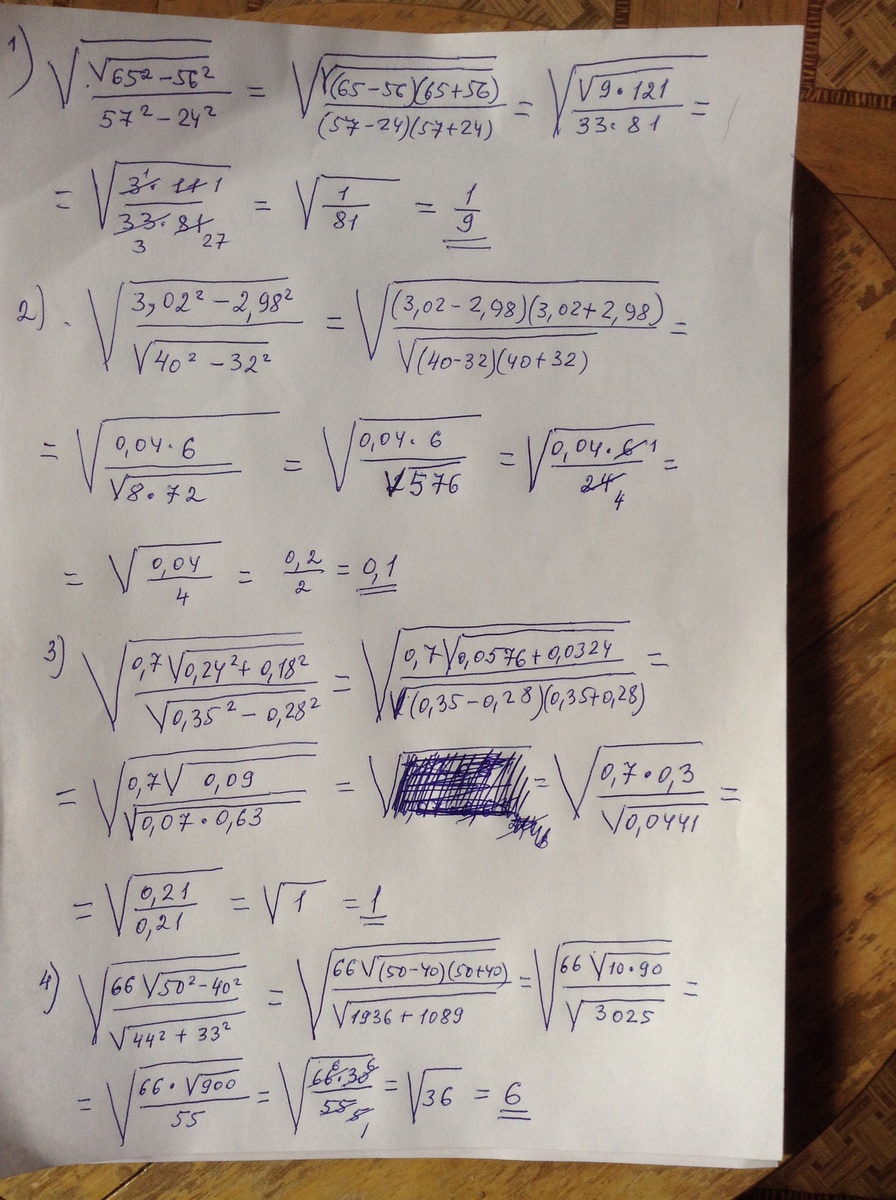 1) √(√(65² − 56²) / (57² − 24²)) = √(√((65−56)(65+56)) / ((57−24)(57+24))) = √(√(9·121) / (33·81)) =
= √(3·11 / (33·81)) = √(1/81) = 1/9
2) √((3,02² − 2,98²) / √(40² − 32²)) = √((3,02 − 2,98)(3,02 + 2,98) / √((40−32)(40+32))) =
= √(0,04·6 / √(8·72)) = √(0,04·6 / √576) = √(0,04·6 / 24) =
= √(0,04 / 4) = 0,2/2 = 0,1
3) √(0,7√(0,24² + 0,18²) / √(0,35² − 0,28²)) = √(0,7√(0,0576 + 0,0324) / √((0,35 − 0,28)(0,35 + 0,28))) =
= √(0,7√0,09 / √(0,07·0,63)) = √ = √(0,7·0,3 / √0,0441) =
= √(0,21 / 0,21) = √1 = 1
4) √(66√(50² − 40²) / √(44² + 33²)) = √(66√((50−40)(50+40)) / √(1936 + 1089)) = √(66√(10·90) / √3025) =
= √(66·√900 / 55) = √(66·30 / 55) = √36 = 6